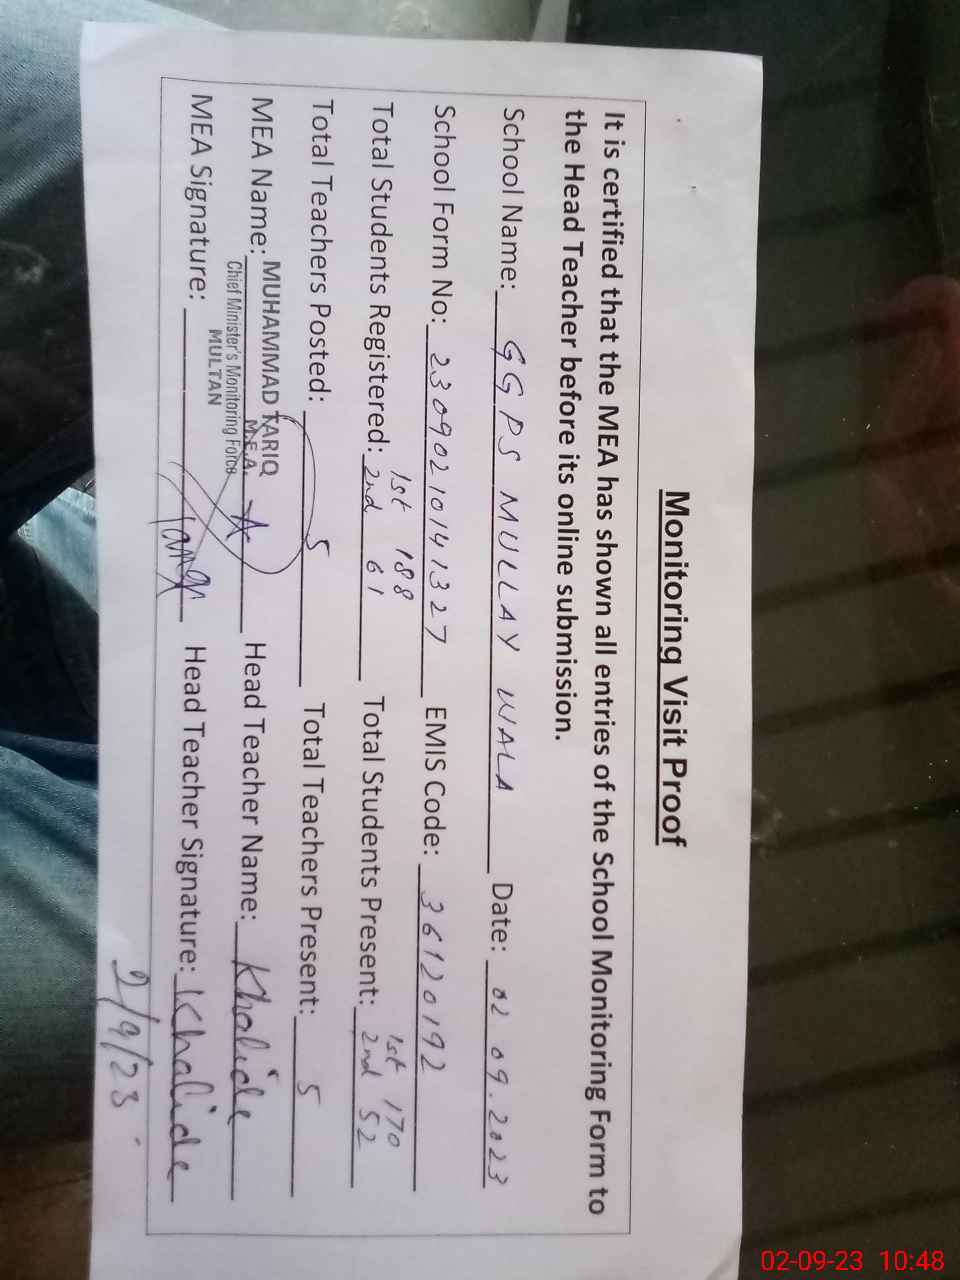 Monitoring Visit Proof
It is certified that the MEA has shown all entries of the School Monitoring Form to
the Head Teacher before its online submission.
School Name: GGPS MULLAY WALA Date: 02 09.2023
School Form No: 23090210141327 EMIS Code: 36120192
Total Students Registered: 1st 188 Total Students Present: 1st 170
2nd 61 2nd 52
Total Teachers Posted: 5 Total Teachers Present: 5
MEA Name: MUHAMMAD TARIQ Head Teacher Name: Khalida
M.E.A.
Chief Minister's Monitoring Force
MULTAN
MEA Signature: Tariq Head Teacher Signature: Khalida
2/9/23
02-09-23 10:48